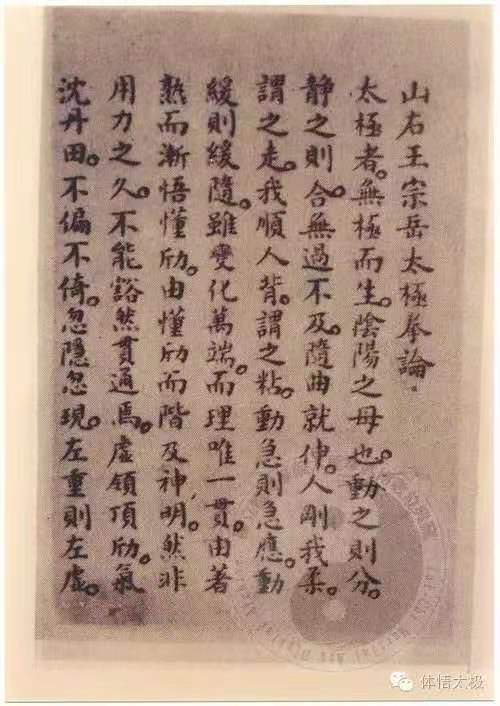 山右王宗岳太極拳論.
太極者。無極而生。陰陽之母也。動之則分。
静之則合。無過不及。隨曲就伸。人剛我柔。
謂之走。我順人背。謂之粘。動急則急應。動
緩則緩隨。雖變化萬端。而理唯一貫。由著
熟而漸悟懂劤。由懂劤而階及神明。然非
用力之久。不能豁然貫通焉。虛領頂劤。氣
沈丹田。不偏不倚。忽隱忽現。左重則左虛。
体悟太极